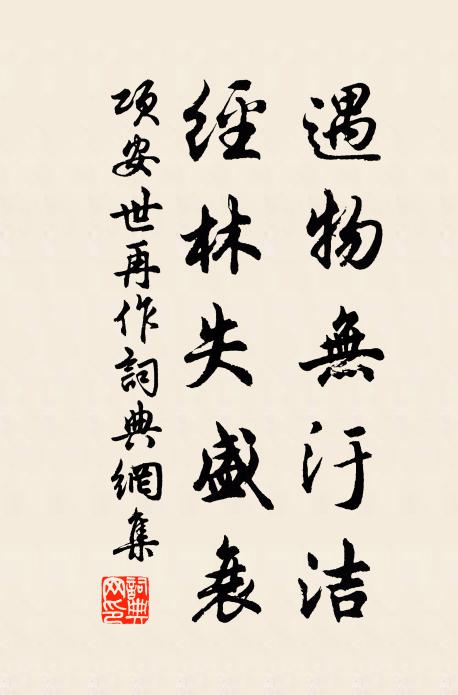 遇物無汙洁
經林失盛衰
項安世再作詞典網集
詞典
网印